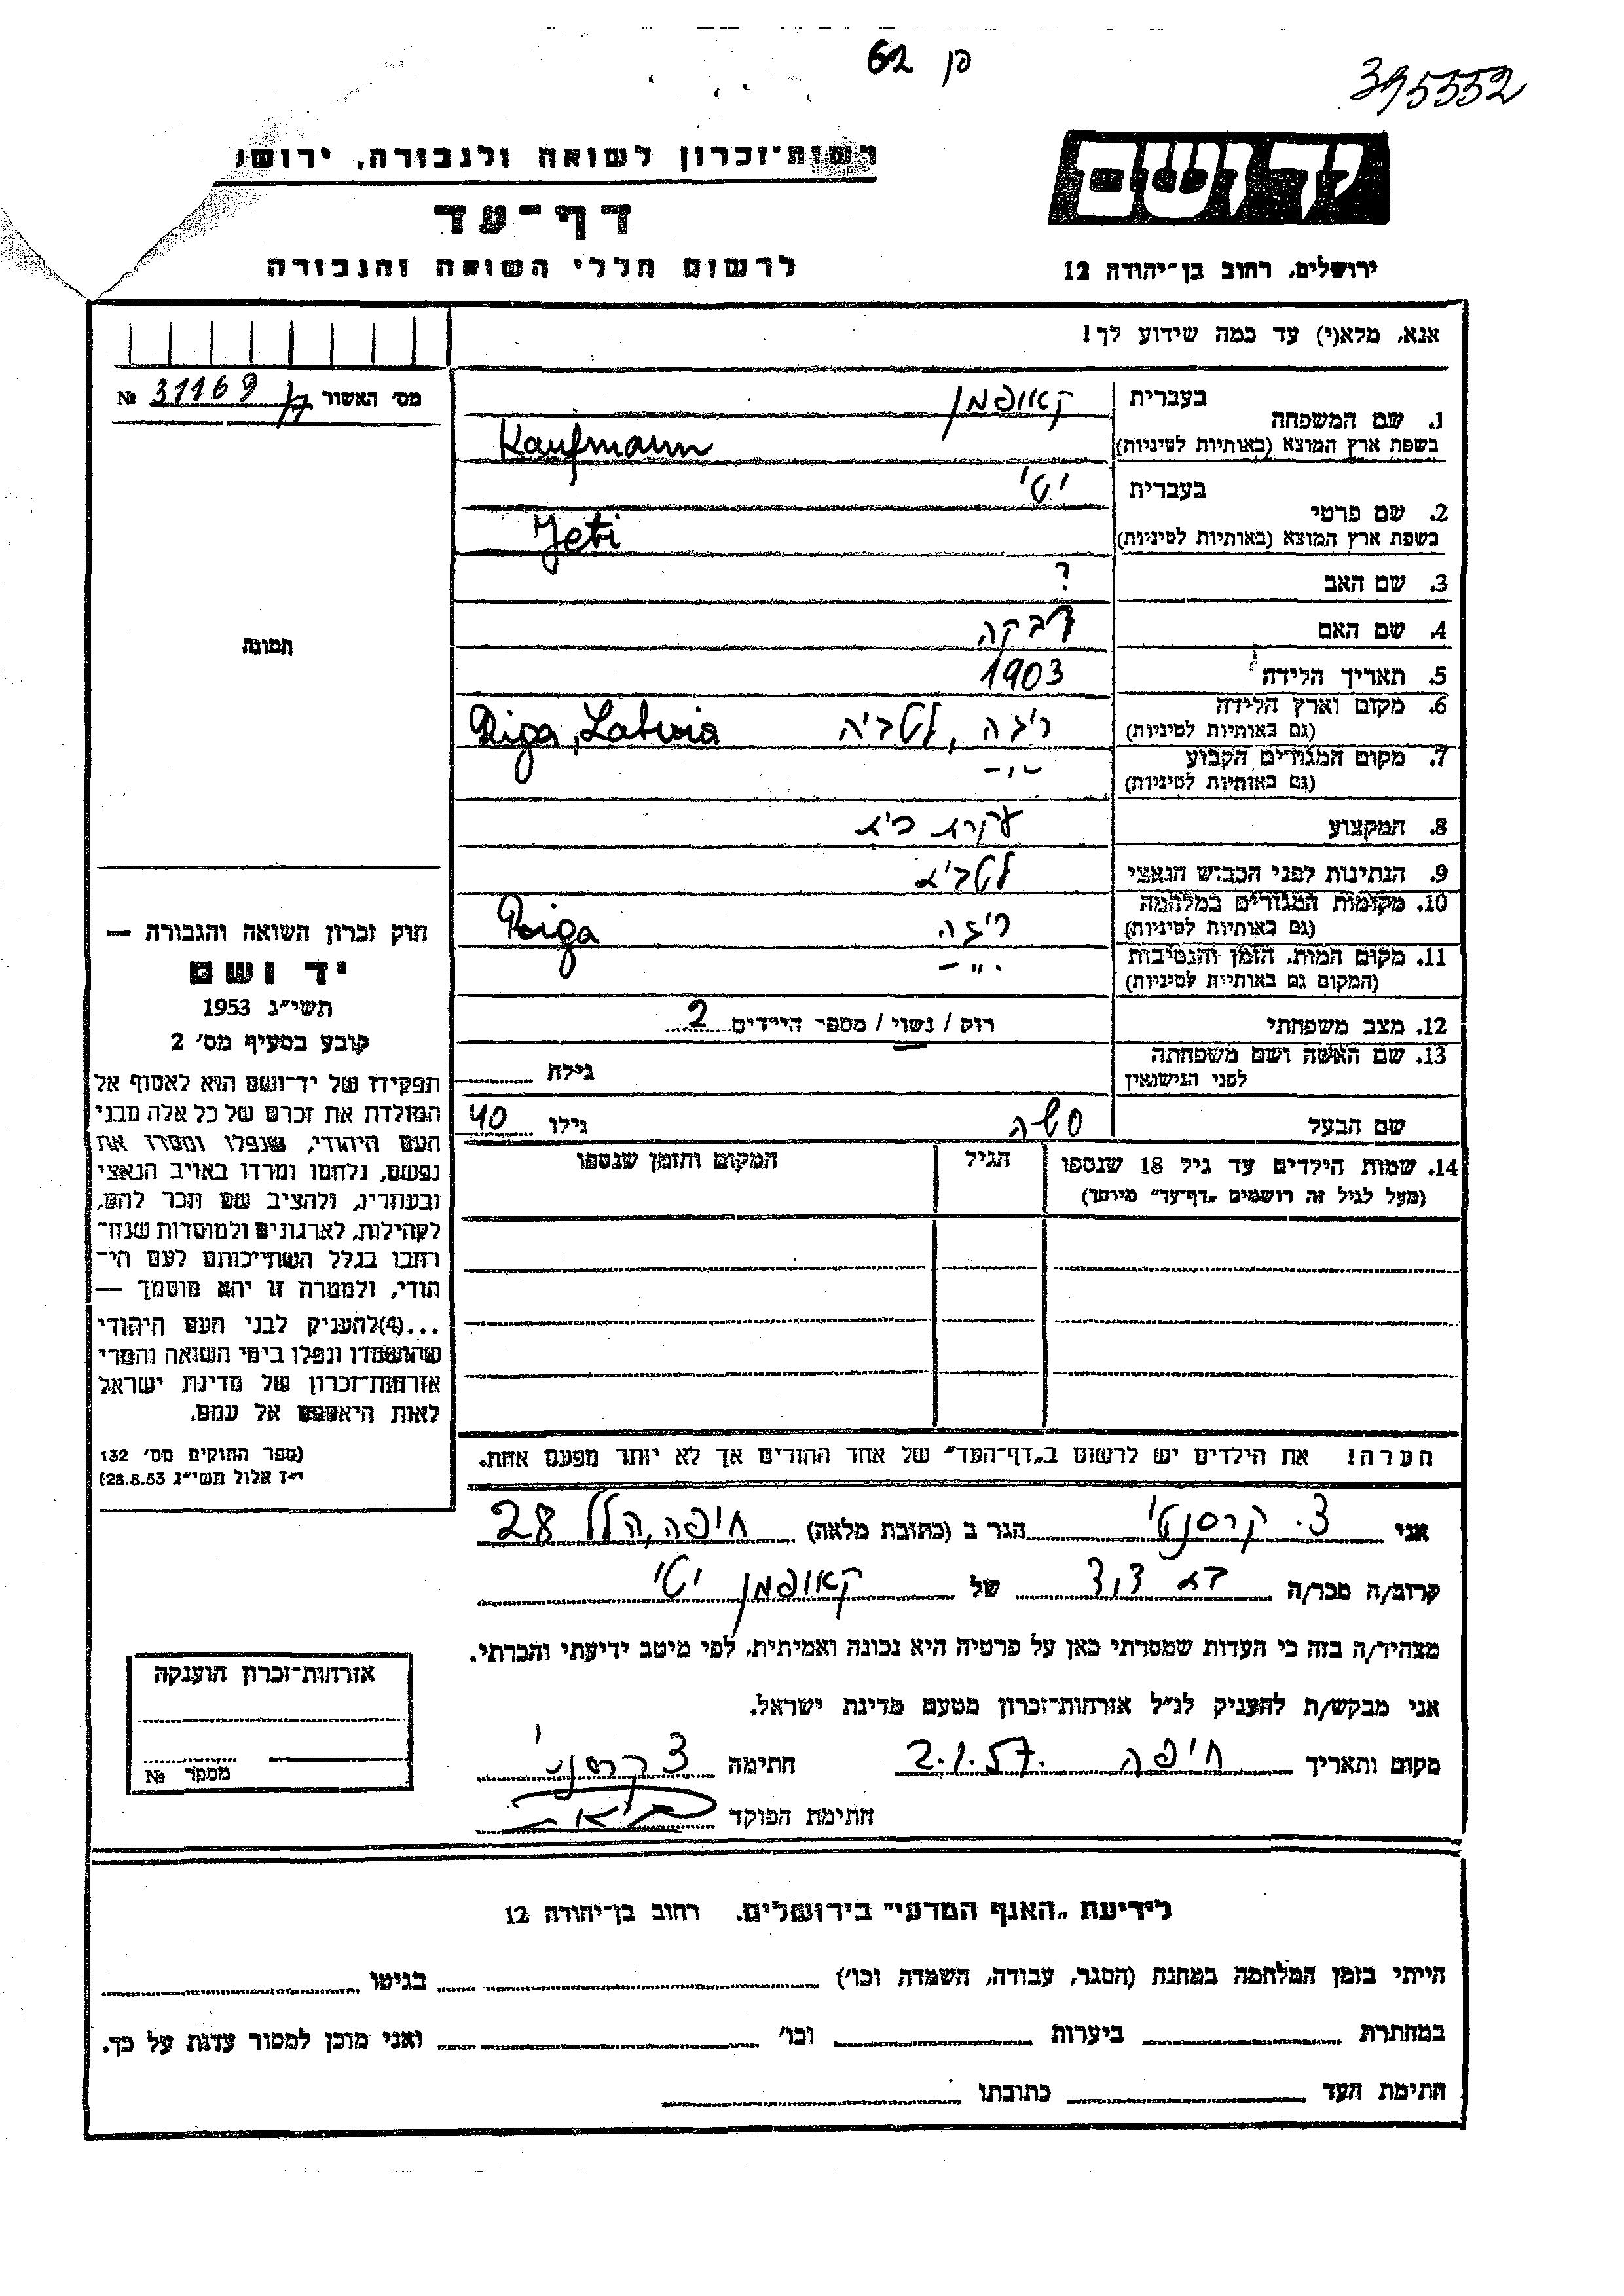 פן 62
395552
יד ושם
ירושלים, רחוב בן־יהודה 12
רשות־זכרון לשואה ולגבורה, ירוש
דף־עד
לרשום חללי השואה והגבורה
אנא, מלא(י) עד כמה שידוע לך!
מס׳ האשור 31169 №
1. שם המשפחה
בעברית קאופמן
בשפת ארץ המוצא (באותיות לטיניות) Kaufmann
2. שם פרטי
בעברית יטי
בשפת ארץ המוצא (באותיות לטיניות) Jeti
3. שם האב ?
4. שם האם רבקה
5. תאריך הלידה 1903
6. מקום וארץ הלידה (גם באותיות לטיניות) ריגה, לטביה Riga, Latvia
7. מקום המגורים הקבוע (גם באותיות לטיניות) -"-
8. המקצוע עקרת בית
9. הנתינות לפני הכבוש הנאצי לטבית
10. מקומות המגורים במלחמה (גם באותיות לטיניות) ריגה Riga
11. מקום המות, הזמן והנסיבות (המקום גם באותיות לטיניות) -"-
12. מצב משפחתי רוק / נשוי / מספר הילדים 2
13. שם האשה ושם משפחתה לפני הנישואין גילה
שם הבעל סשה גילו 40
14. שמות הילדים עד גיל 18 שנספו
(מעל לגיל זה רושמים „דף־עד״ מיוחד)
הגיל
המקום והזמן שנספו
הערה! את הילדים יש לרשום ב„דף־העד״ של אחד ההורים אך לא יותר מפעם אחת.
תמונה
חוק זכרון השואה והגבורה —
יד ושם
תשי״ג 1953
קובע בסעיף מס׳ 2
תפקידו של יד־ושם הוא לאסוף אל
המולדת את זכרם של כל אלה מבני
העם היהודי, שנפלו ומסרו את
נפשם, נלחמו ומרדו באויב הנאצי
ובעוזריו, ולהציב שם וזכר להם,
לקהילות, לארגונים ולמוסדות שנח־
רבו בגלל השתייכותם לעם הי־
הודי, ולמטרה זו יהא מוסמך —
...(4)להעניק לבני העם היהודי
שהושמדו ונפלו בימי השואה והמרי
אזרחות־זכרון של מדינת ישראל
לאות היאספם אל עמם.
(ספר החוקים מס׳ 132
י״ז אלול תשי״ג 28.8.53)
אני צ. קרסנטי הגר ב (כתובת מלאה) חיפה, הלל 28
קרוב/ה מכר/ה בת דוד של קאופמן יטי
מצהיר/ה בזה כי העדות שמסרתי כאן על פרטיה היא נכונה ואמיתית, לפי מיטב ידיעתי והכרתי.
אני מבקש/ת להעניק לנ״ל אזרחות־זכרון מטעם מדינת ישראל.
מקום ותאריך חיפה 2.1.57 חתימה
חתימת הפוקד
אזרחות־זכרון הוענקה
מספר №
לידיעת „האגף המדעי״ בירושלים. רחוב בן־יהודה 12
הייתי בזמן המלחמה במחנה (הסגר, עבודה, השמדה וכו׳) בגיטו
במחתרת ביערות וכו׳ ואני מוכן למסור עדות על כך.
חתימת העד כתובתו